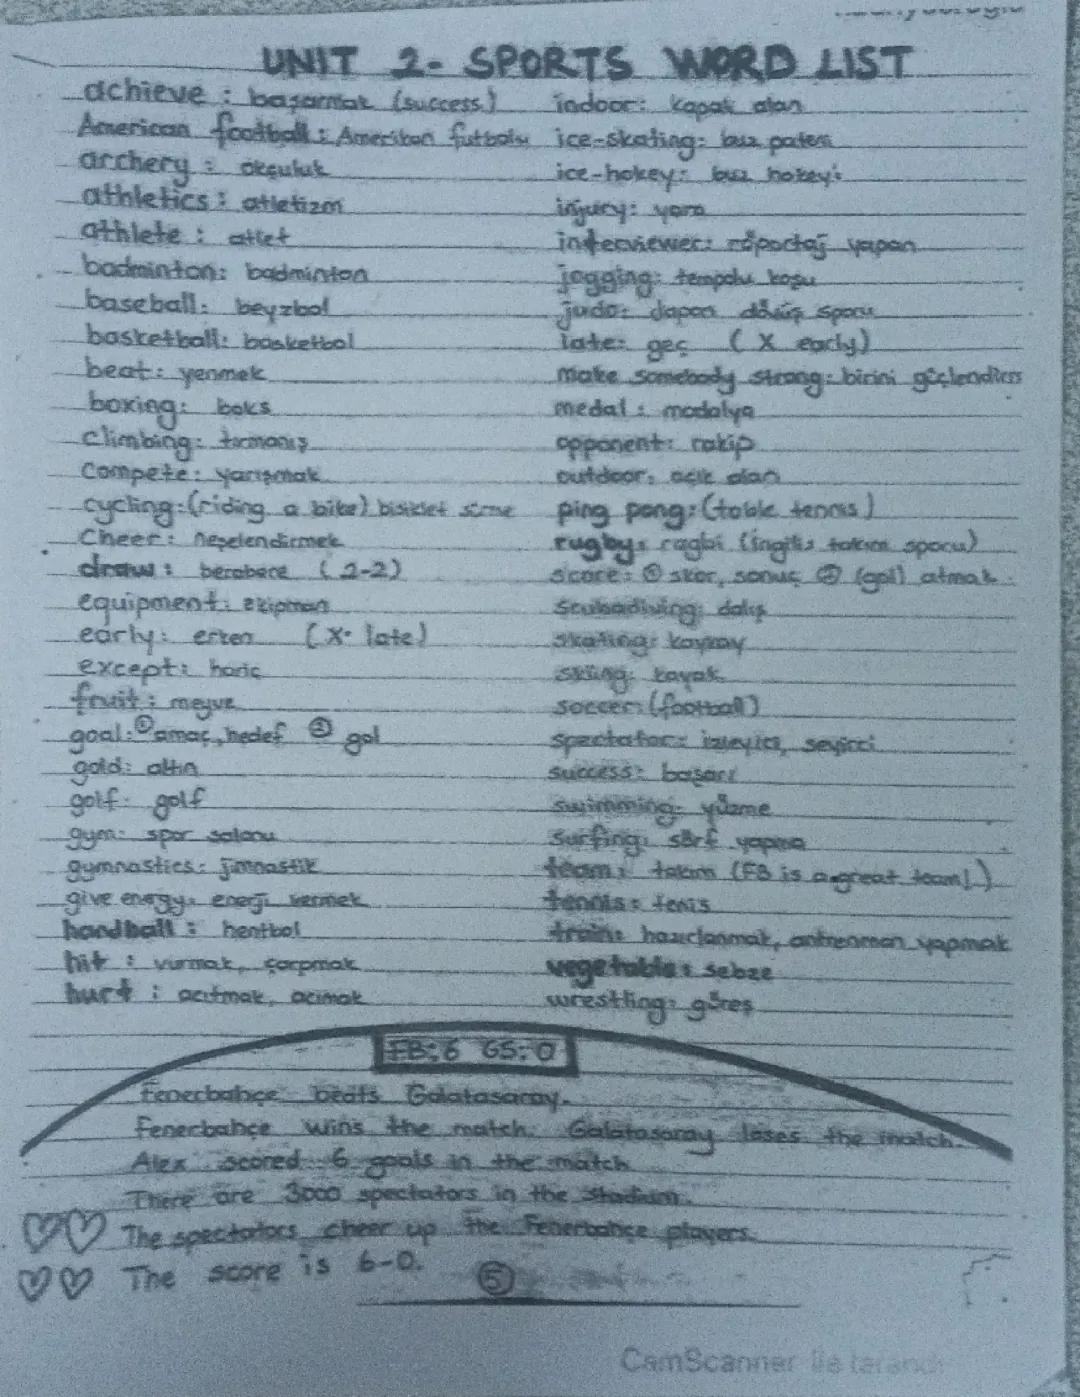 UNIT 2- SPORTS WORD LIST
achieve : başarmak (success)
American football : Amerikan futbolu
archery : okçuluk
athletics : atletizm
athlete : atlet
badminton: badminton
baseball: beyzbol
basketball: basketbol
beat: yenmek
boxing: boks
climbing: tırmanış
Compete: yarışmak
cycling:(riding a bike) bisiklet sürme
Cheer: neşelendirmek
draw : berabere (2-2)
equipment: ekipman
early: erken (X late)
except: hariç
fruit : meyve
goal:① amaç, hedef ② gol
gold: altın
golf: golf
gym: spor salonu
gymnastics: jimnastik
give energy: enerji vermek
handball : hentbol
hit : vurmak, çarpmak
hurt : acıtmak, acımak
indoor: kapalı alan
ice-skating: buz pateni
ice-hokey: buz hokeyi
injury: yara
interviewer: röportaj yapan
jogging: tempolu koşu
judo: Japon dövüş sporu
late: geç ( X early)
make somebody strong: birini güçlendirm
medal : madalya
opponent: rakip
outdoor: açık alan
ping pong: (table tennis)
rugby: ragbi (ingiliz takım sporu)
score: ① skor, sonuç ② (gol) atmak
Scubadiving: dalış
skating: kaymay
skiing: kayak
soccer: (football)
spectator: izleyici, seyirci
success: başarı
swimming: yüzme
surfing: sörf yapma
team: takım (FB is a great team!)
tennis: tenis
train: hazırlanmak, antrenman yapmak
vegetable: sebze
wrestling: güreş
FB:6 GS:0
Fenerbahçe beats Galatasaray.
Fenerbahçe wins the match. Galatasaray loses the match.
Alex scored 6 goals in the match
There are 3000 spectators in the stadium.
The spectators cheer up the Fenerbahçe players.
The score is 6-0.
⑤
CamScanner ile tarandı